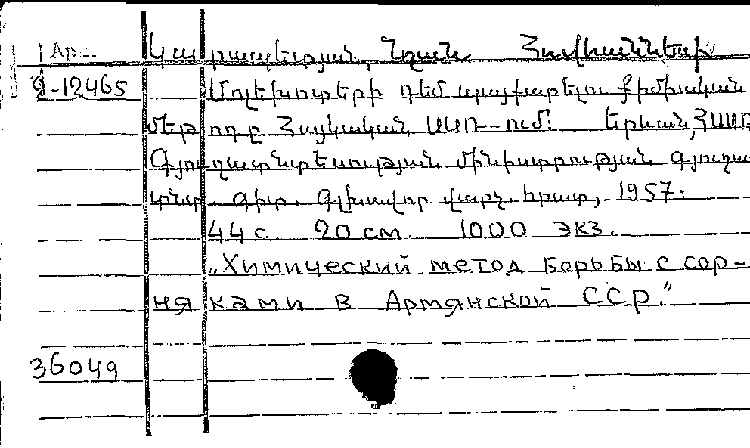 Ар.
Կարապետյան, Նշան Հովհաննեսի
9-12465 Մոլախոտերի դեմ պայքարելու քիմիական
մեթոդը Հայկական ՍՍՌ-ում: Երևան, ՀՍՍՌ
Գյուղատնտեսության մինիստրության գյուղա
տնտ. գիտ. Գլխավոր վարչ. հրատ., 1957.
44 с. 20 см. 1000 экз.
„Химический метод борьбы с сор-
няками в Армянской ССР."
36049